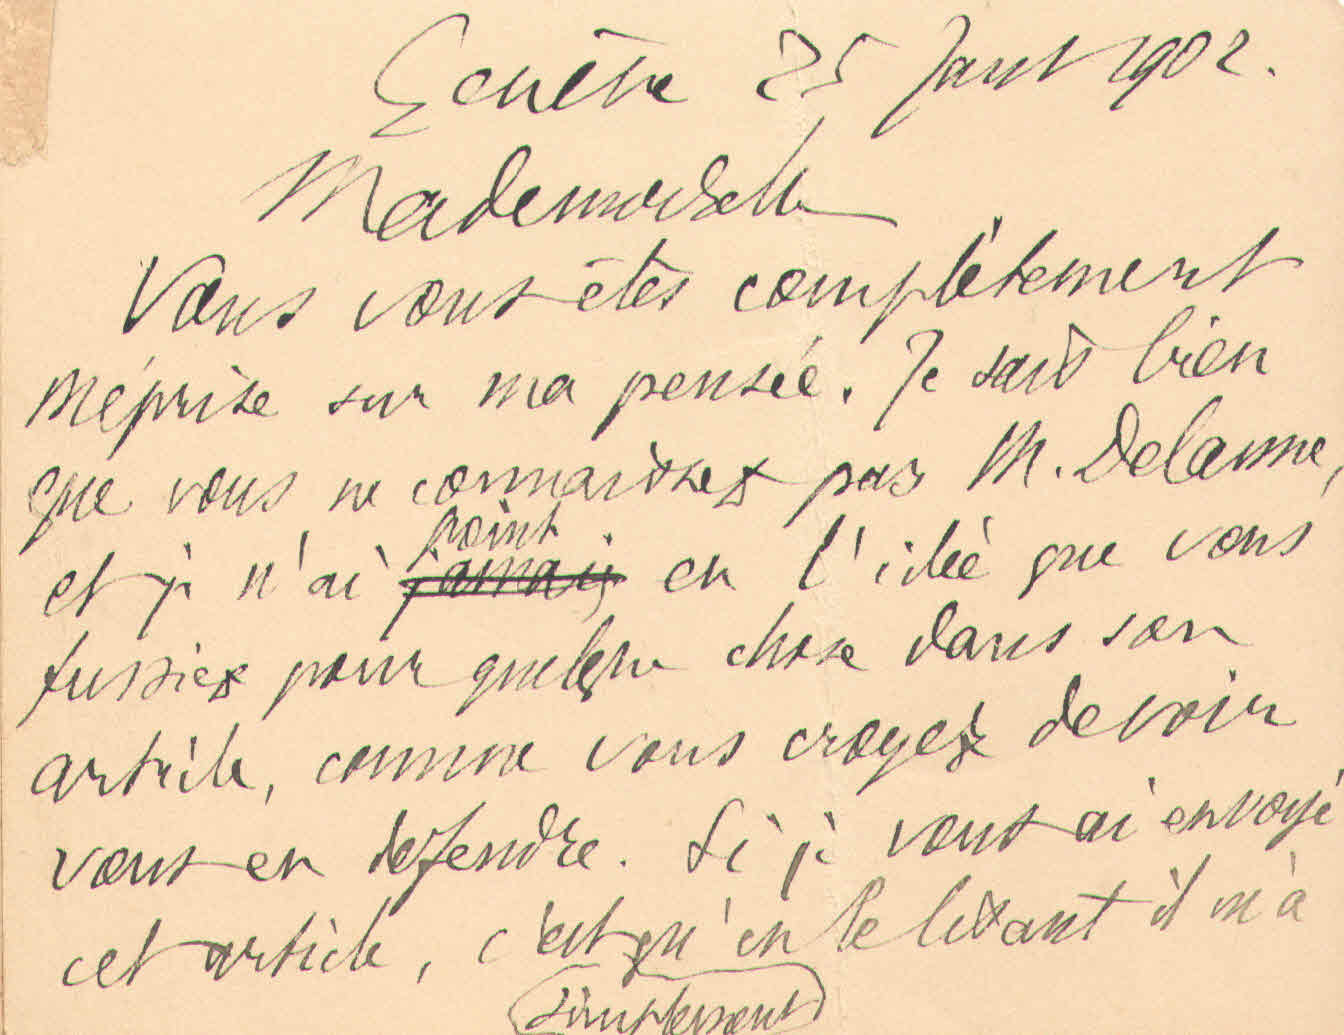 Genève 25 Janv 1902.
Mademoiselle
Vous vous êtes complètement
méprise sur ma pensée. Je sais bien
que vous ne connaissez pas M. Delanne,
point
et je n'ai jamais eu l'idée que vous
fussiez pour quelque chose dans son
article, comme vous croyez devoir
vous en défendre. Si je vous ai envoyé
cet article, c'est qu'en le lisant il m'a
simplement